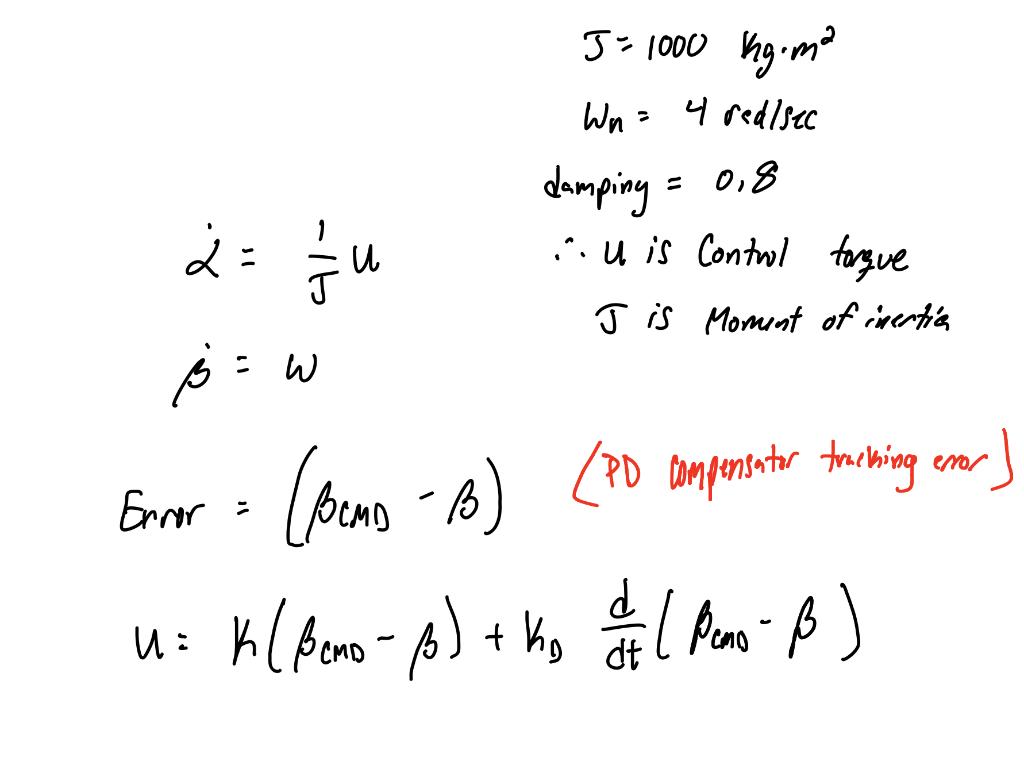 J = 1000 kg·m²
Wn = 4 rad/sec
damping = 0.8
α̇ = 1/J u
∴ u is Control torque
J is Moment of inertia
β̇ = w
Error = (βCMD - β)
(PD compensator tracking error)
u = K(βCMD - β) + KD d/dt (βCMD - β)